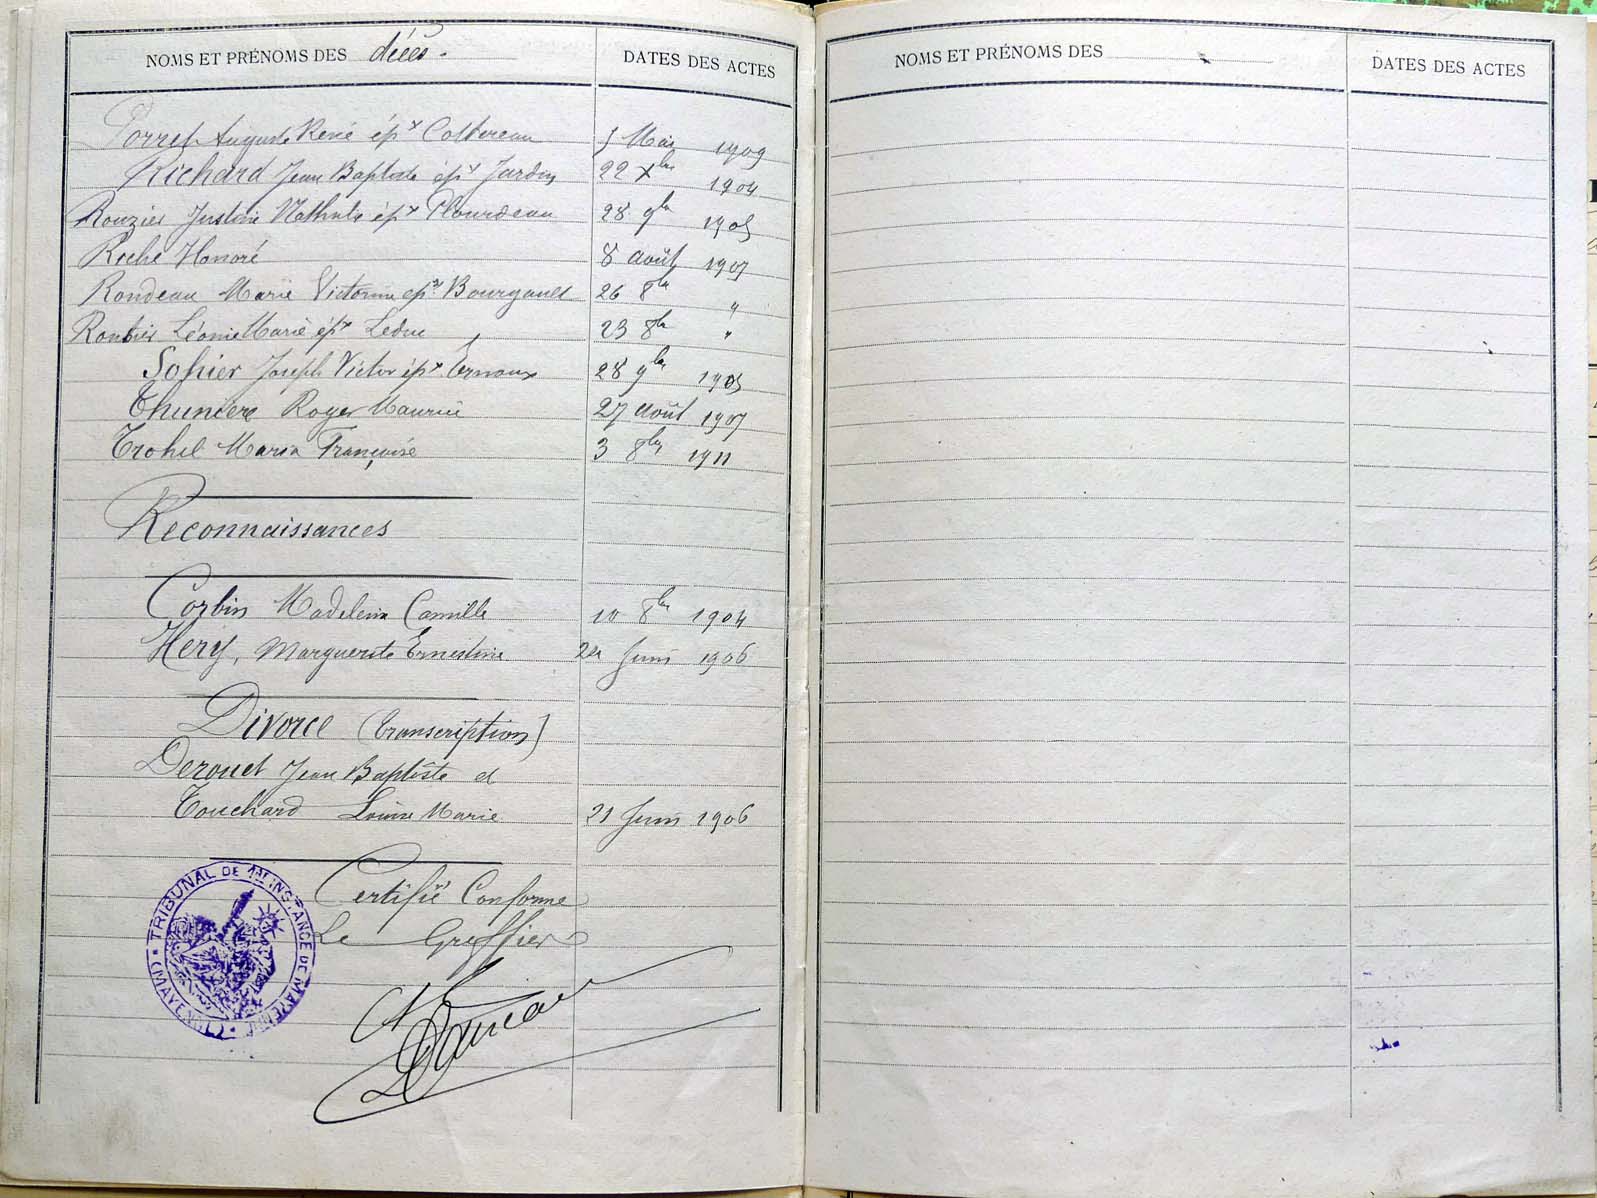 NOMS ET PRÉNOMS DES décès. DATES DES ACTES
Porret Auguste René épx Cottereau 5 Mai 1909
Richard Jean Baptiste épx Jardin 22 Xbre 1904
Rouzier Justine Mathurte épx Plourdeau 28 9bre 1905
Roche Honoré 8 août 1907
Rondeau Marie Victorine épse Bourgault 26 8bre "
Roubier Léonie Marie épx Leduc 23 8bre "
Sohier Joseph Victor épx Ernoux 28 9bre 1905
Thuniere Roger Maurice 27 août 1907
Trohel Maria Françoise 3 8bre 1911
Reconnaissances
Corbin Madeleine Camille 10 8bre 1904
Hery, Marguerite Ernestine 21 Juin 1906
Divorce (transcription)
Derouet Jean Baptiste et
Touchard Louise Marie 21 Juin 1906
Certifié Conforme
Le Greffier
TRIBUNAL DE 1RE INSTANCE DE MAYENNE (MAYENNE)
NOMS ET PRÉNOMS DES DATES DES ACTES